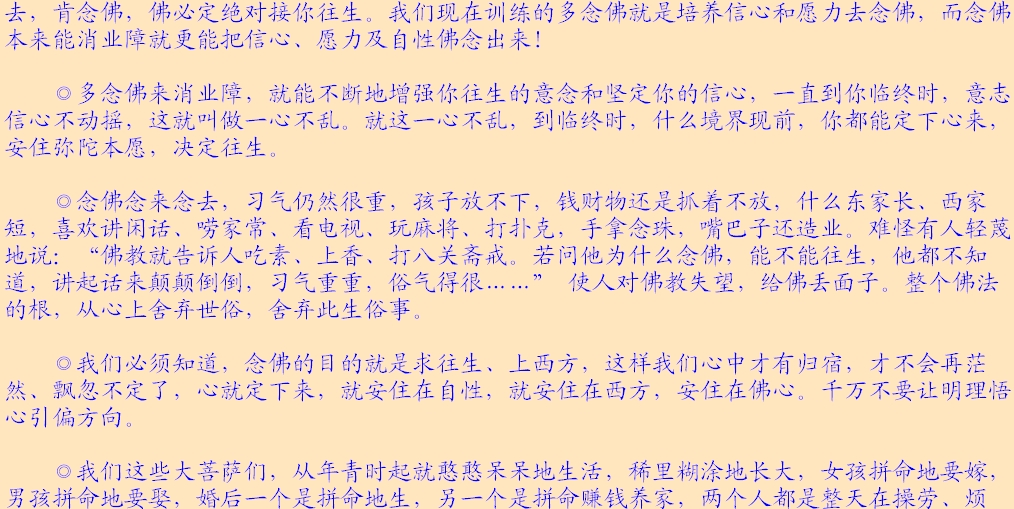 去，肯念佛，佛必定绝对接你往生。我们现在训练的多念佛就是培养信心和愿力去念佛，而念佛
本来能消业障就更能把信心、愿力及自性佛念出来！
◎多念佛来消业障，就能不断地增强你往生的意念和坚定你的信心，一直到你临终时，意志
信心不动摇，这就叫做一心不乱。就这一心不乱，到临终时，什么境界现前，你都能定下心来，
安住弥陀本愿，决定往生。
◎念佛念来念去，习气仍然很重，孩子放不下，钱财物还是抓着不放，什么东家长、西家
短，喜欢讲闲话、唠家常、看电视、玩麻将、打扑克，手拿念珠，嘴巴子还造业。难怪有人轻蔑
地说：“佛教就告诉人吃素、上香、打八关斋戒。若问他为什么念佛，能不能往生，他都不知
道，讲起话来颠颠倒倒，习气重重，俗气得很……” 使人对佛教失望，给佛丢面子。整个佛法
的根，从心上舍弃世俗，舍弃此生俗事。
◎我们必须知道，念佛的目的就是求往生、上西方，这样我们心中才有归宿，才不会再茫
然、飘忽不定了，心就定下来，就安住在自性，就安住在西方，安住在佛心。千万不要让明理悟
心引偏方向。
◎我们这些大菩萨们，从年青时起就憨憨呆呆地生活，稀里糊涂地长大，女孩拼命地要嫁，
男孩拼命地要娶，婚后一个是拼命地生，另一个是拼命赚钱养家，两个人都是整天在操劳、烦